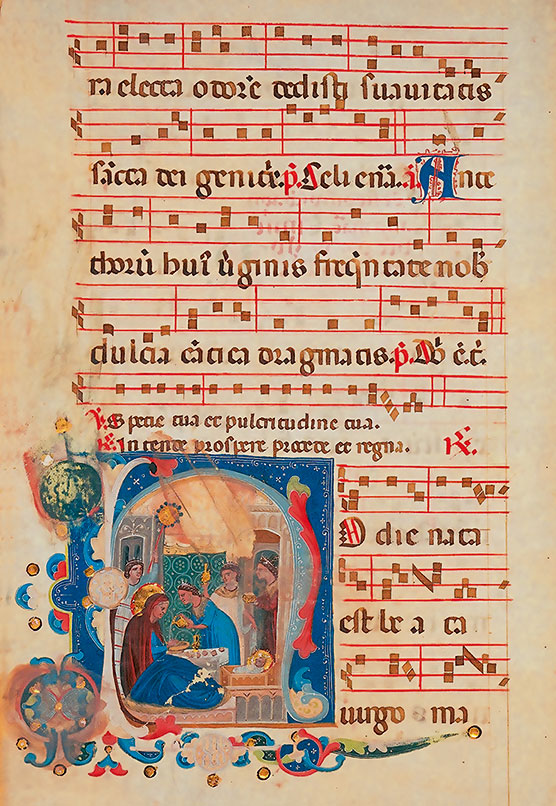 ra electa odore dedisti suauitatis
sācta dei genitr̄. p̄. Celi enār̄. a. Ante
thorū hui' ūginis freqn̄tate nob
dulcia cātica dragmatis. p̄.
℣. Specie tua et pulcritudine tua.
℟. Intende prospere procede et regna. ℟.
H O die nata
est be a ta
uirgo ma